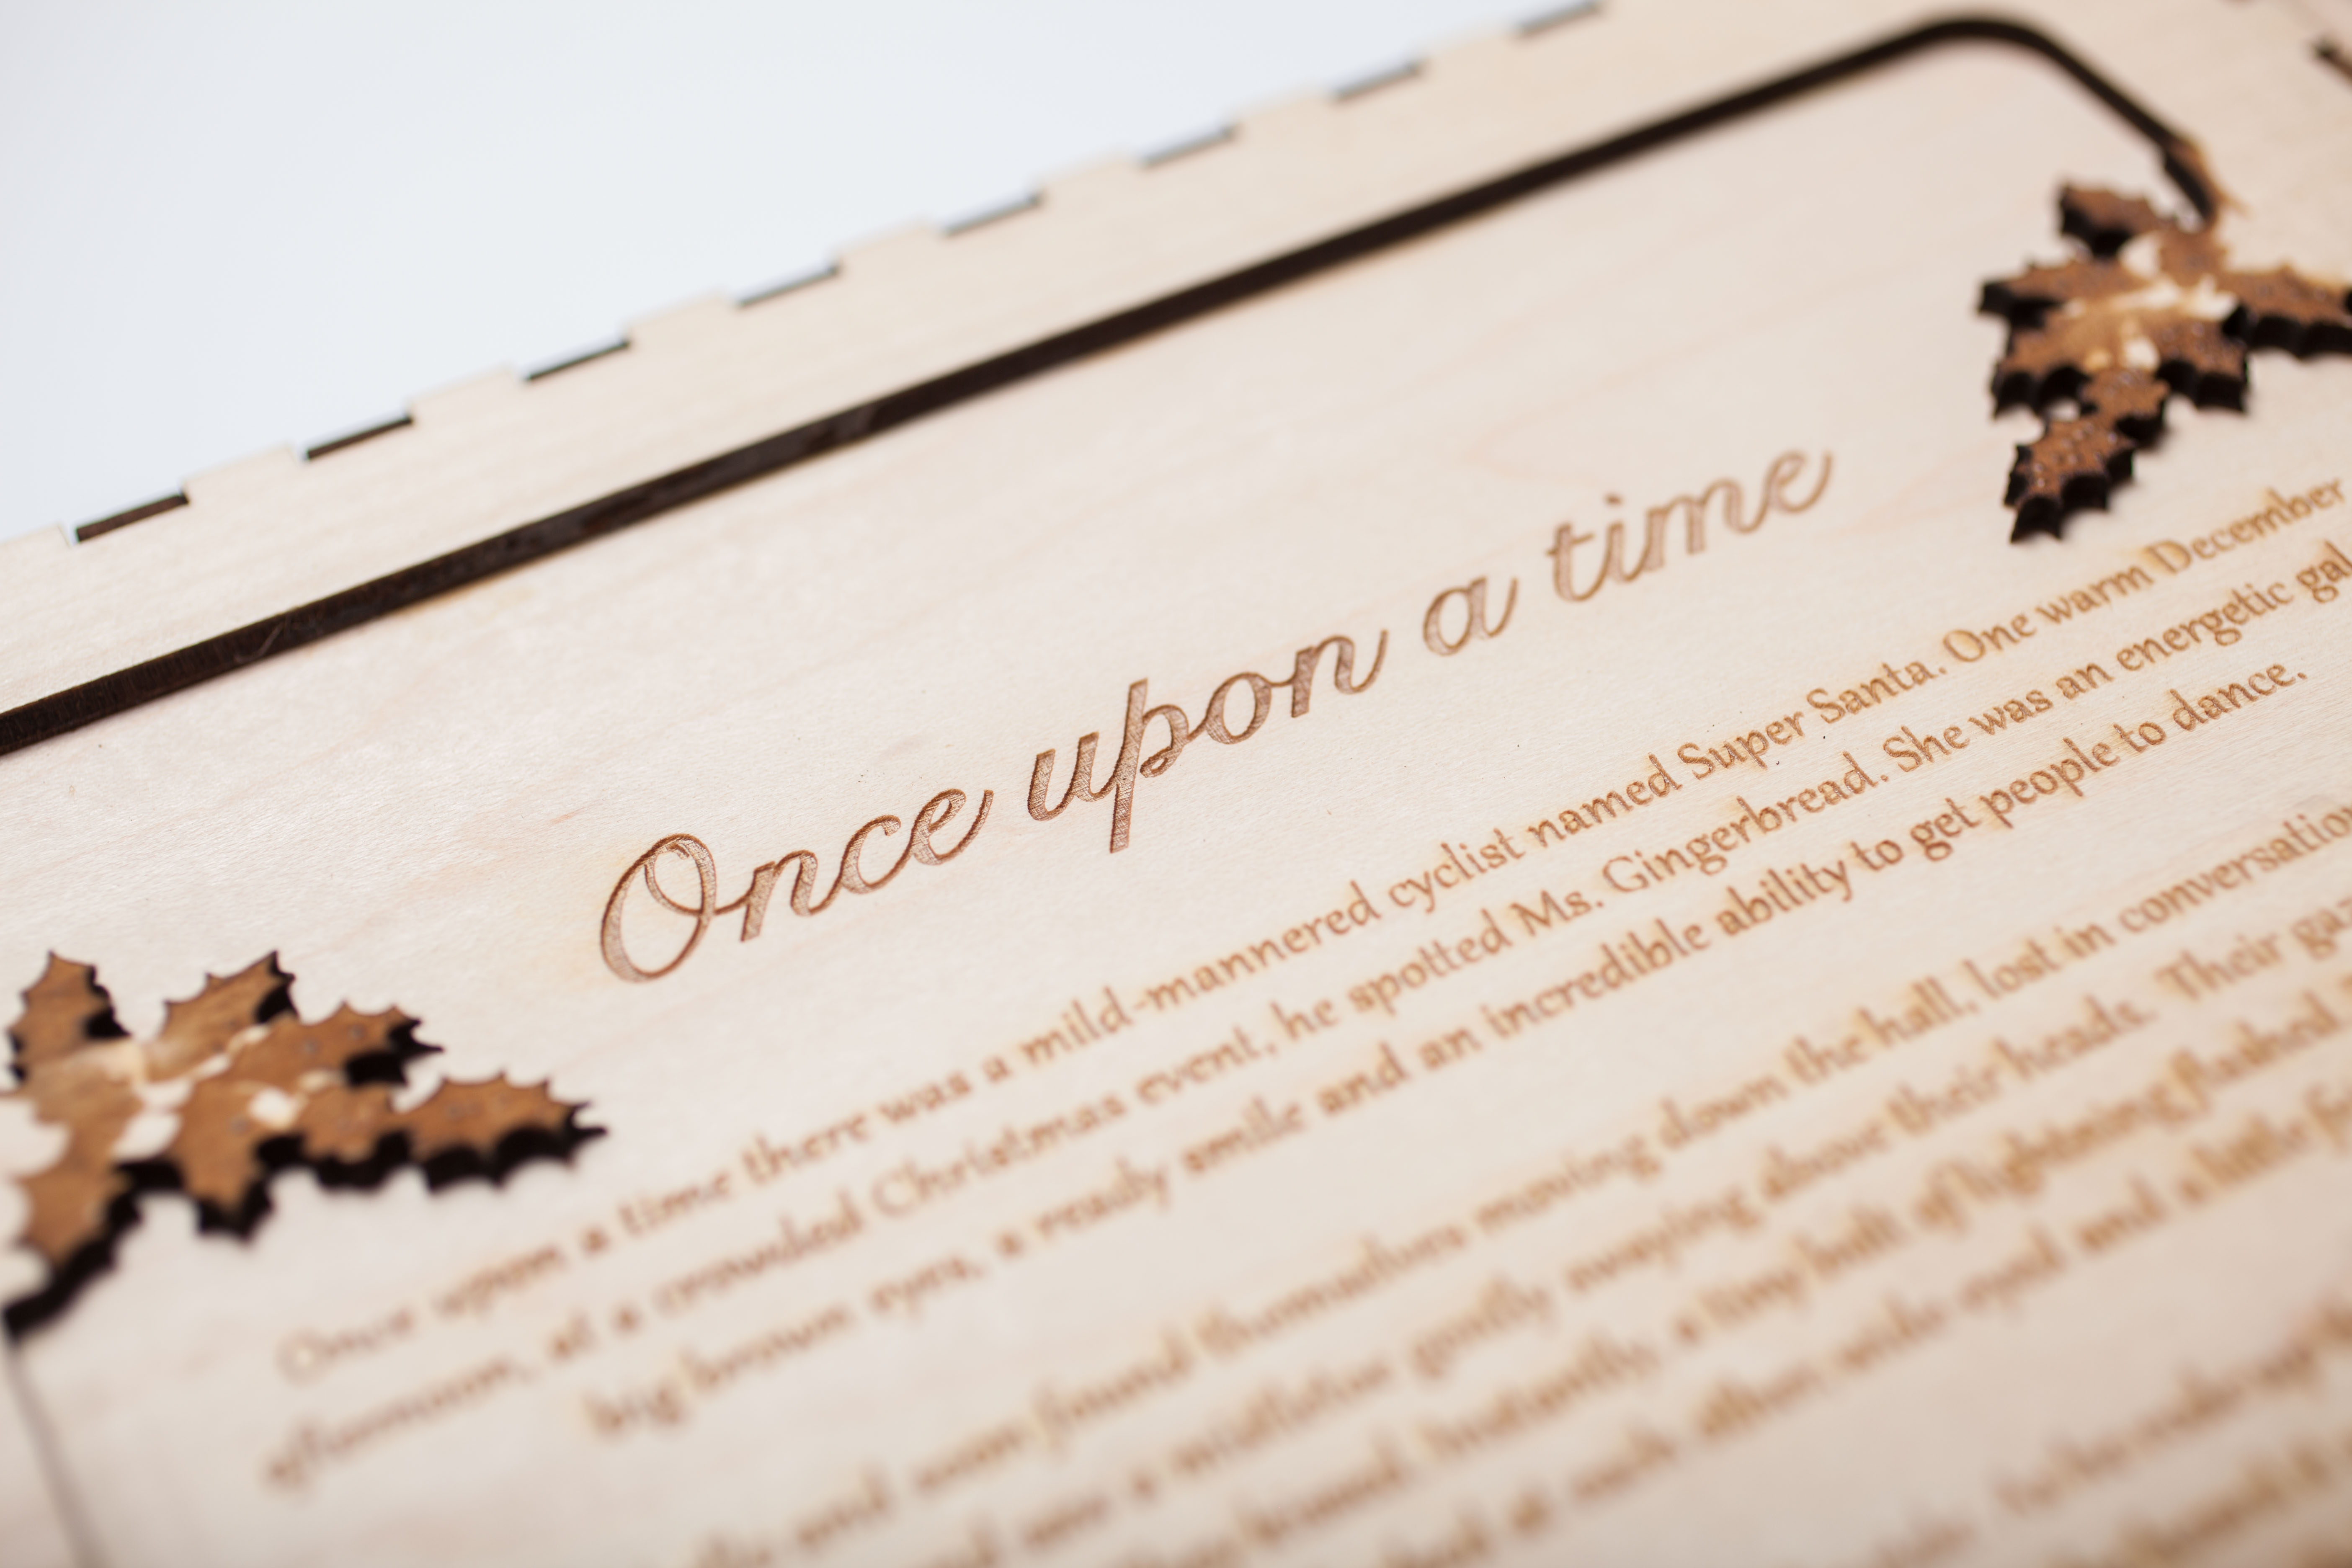 Once upon a time
Once upon a time there was a mild-mannered cyclist named Super Santa. One warm December
afternoon, at a crowded Christmas event, he spotted Ms. Gingerbread. She was an energetic gal
big brown eyes, a ready smile and an incredible ability to get people to dance.
and soon found themselves moving down the hall, lost in conversation
a mistletoe gently swaying above their heads. Their gaz
They kissed. Instantly, a tiny bolt of lightning flashed.
at each other wide-eyed and a little